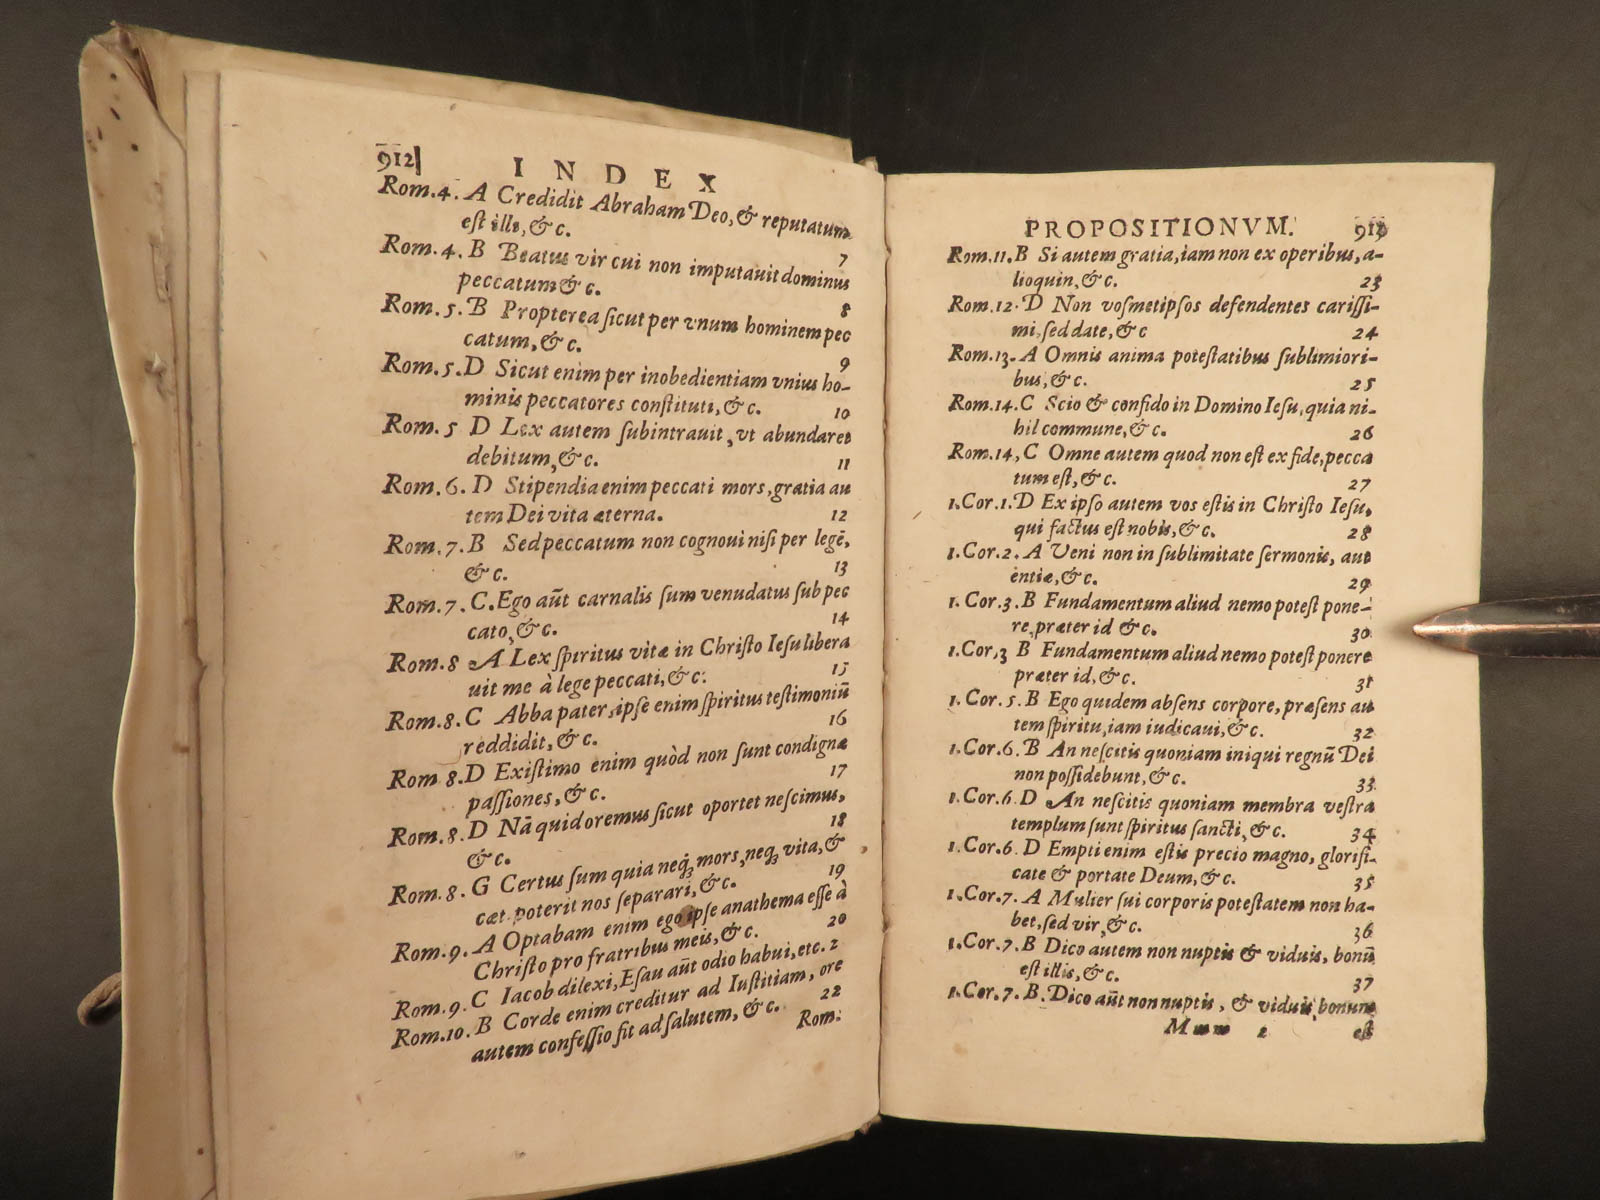 912
INDEX
Rom.4. A Credidit Abraham Deo, & reputatum
est illi, &c.
7
Rom.4. B Beatus vir cui non imputauit dominus
peccatum &c.
8
Rom.5. B Propterea sicut per vnum hominem pec
catum, &c.
9
Rom.5. D Sicut enim per inobedientiam vnius ho-
minis peccatores constituti, &c. 10
Rom.5 D Lex autem subintrauit, vt abundaret
debitum, &c. 11
Rom.6. D Stipendia enim peccati mors, gratia au
tem Dei vita æterna. 12
Rom.7. B Sed peccatum non cognoui nisi per legē,
&c. 13
Rom.7. C. Ego aūt carnalis sum venudatus sub pec
cato, &c. 14
Rom.8 A Lex spiritus vitæ in Christo Iesu libera
uit me à lege peccati, &c. 15
Rom.8. C Abba pater, ipse enim spiritus testimoniū
reddidit, &c. 16
Rom 8. D Existimo enim quòd non sunt condignæ
passiones, &c. 17
Rom.8. D Nā quid oremus sicut oportet nescimus,
&c. 18
Rom.8. G Certus sum quia neq; mors, neq; vita, &
cæt. poterit nos separari, &c. 19
Rom.9. A Optabam enim ego ipse anathema esse à
Christo pro fratribus meis, &c. 20
Rom.9. C Iacob dilexi, Esau aūt odio habui, etc. 2
Rom.10. B Corde enim creditur ad Iustitiam, ore
autem confessio fit ad salutem, &c. 22
Rom:
PROPOSITIONVM.
Rom.11. B Si autem gratia, iam non ex operibus, a-
lioquin, &c. 23
Rom.12. D Non vosmetipsos defendentes carissi-
mi, sed date, &c 24
Rom.13. A Omnis anima potestatibus sublimiori-
bus, &c. 25
Rom.14. C Scio & confido in Domino Iesu, quia ni-
hil commune, &c. 26
Rom.14, C Omne autem quod non est ex fide, pecca
tum est, &c. 27
1.Cor.1. D Ex ipso autem vos estis in Christo Iesu,
qui factus est nobis, &c. 28
1.Cor.2. A Veni non in sublimitate sermonis, aut
entiæ, &c. 29
1.Cor.3. B Fundamentum aliud nemo potest pone-
re, præter id &c. 30
1.Cor,3 B Fundamentum aliud nemo potest ponere
præter id, &c. 31
1.Cor.5. B Ego quidem absens corpore, præsens au
tem spiritu, iam iudicaui, &c. 32
1.Cor.6. B An nescitis quoniam iniqui regnū Dei
non possidebunt, &c. 33
1.Cor.6. D An nescitis quoniam membra vestra
templum sunt spiritus sancti, &c. 34
1.Cor.6. D Empti enim estis precio magno, glorifi-
cate & portate Deum, &c. 35
1.Cor.7. A Mulier sui corporis potestatem non ha-
bet, sed vir, &c. 36
1.Cor.7. B Dico autem non nuptis & viduis, bonū
est illis, &c. 37
1.Cor.7. B. Dico aūt non nuptis, & viduis, bonum
Mmm 2 est